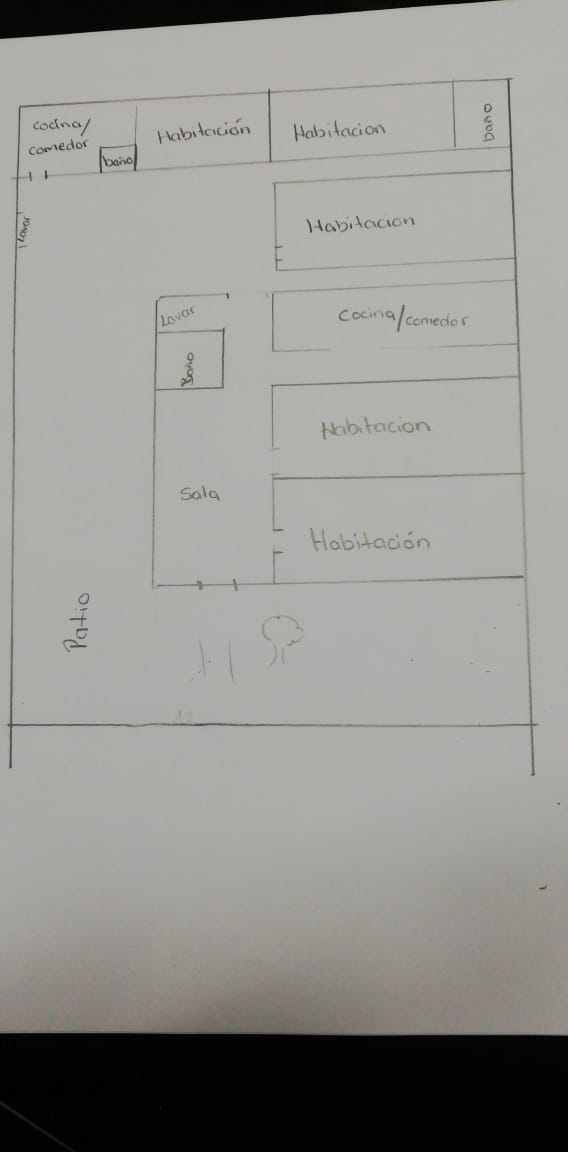 cocina/
comedor
baño
Habitación
Habitacion
baño
Lavar
Habitacion
Lavar
Cocina/comedor
Baño
Habitacion
Sala
Habitación
Patio